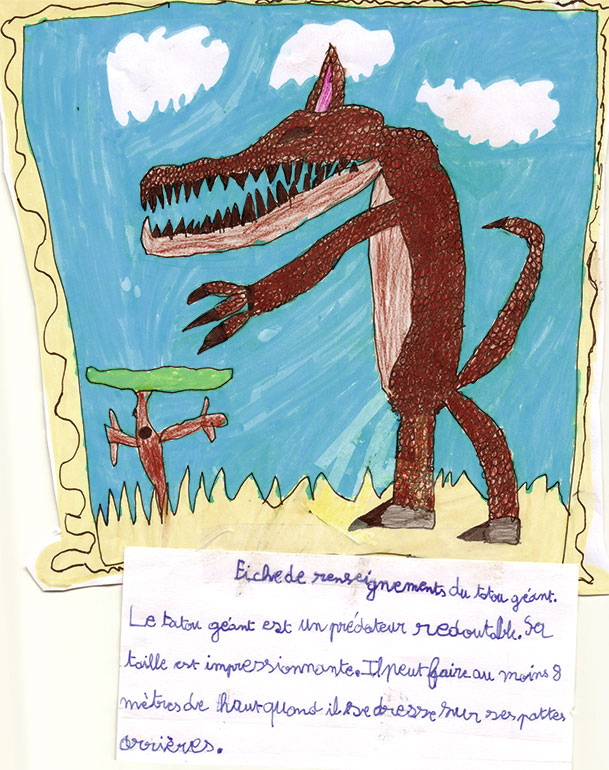 Fiche de renseignements du tatou géant.
Le tatou géant est un prédateur redoutable. Sa
taille est impressionnante. Il peut faire au moins 8
mètres de haut quand il se dresse sur ses pattes
arrières.